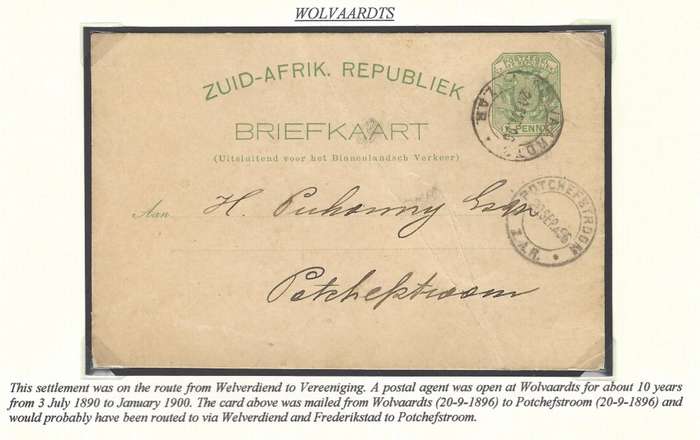 WOLVAARDTS
ZUID-AFRIK. REPUBLIEK
BRIEFKAART
(Uitsluitend voor het Binnenlandsch Verkeer)
PENNY
Z.A.R.
POTCHEFSTROOM
SEP
96
Z.A.R.
Aan
H. Esqr
Potchefstroom
This settlement was on the route from Welverdiend to Vereeniging. A postal agent was open at Wolvaardts for about 10 years
from 3 July 1890 to January 1900. The card above was mailed from Wolvaardts (20-9-1896) to Potchefstroom (20-9-1896) and
would probably have been routed to via Welverdiend and Frederikstad to Potchefstroom.